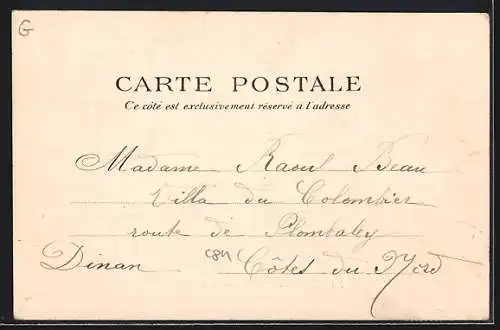 G
CARTE POSTALE
Ce côté est exclusivement réservé à l'adresse
Madame Raoul Beau
Villa du Colombier
route de Plombaley
Dinan Côtes du Nord